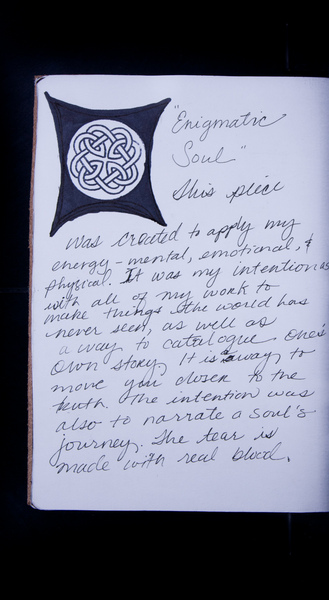 "Enigmatic
Soul"
This piece
was created to apply my
energy - mental, emotional, &
physical. It was my intention as
with all of my work to
make things the world has
never seen, as well as
a way to catalogue one's
own story. It is a way to
move you closer to the
truth. The intention was
also to narrate a soul's
journey. The tear is
made with real blood.